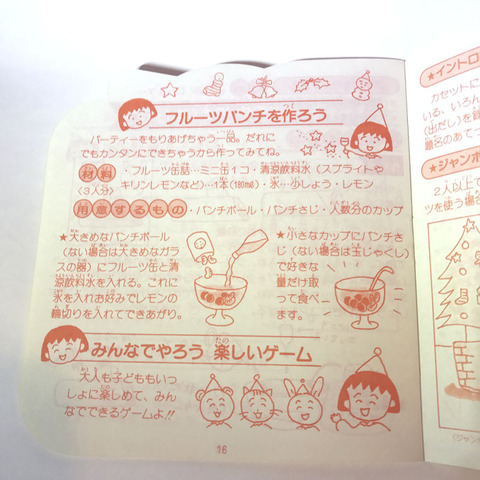 フルーツパンチを作ろう
パーティーをもりあげちゃう一品。だれに
でもカンタンにできちゃうから作ってみてね。
材料
(3人分)
・フルーツ缶詰…ミニ缶1コ・清涼飲料水(スプライトや
キリンレモンなど)…1本(180ml)・氷…少しょう・レモン
用意するもの
・パンチボール・パンチさじ・人数分のカップ
★大きめなパンチボール
(ない場合は大きめなガラ
スの器)にフルーツ缶と清
涼飲料水を入れる。これに
氷を入れお好みでレモンの
輪切りを入れてできあがり。
★小さなカップにパンチさ
じ(ない場合は玉じゃくし)
で好きな
量だけ取
って食べ
ます。
みんなでやろう 楽しいゲーム
大人も子どももいっ
しょに楽しめて、みん
なでできるゲームよ!!
16
★イントロ
カセットに
いる、いろん
(出だし)を
題名のあてっ
★ジャンボ
2人以上で
ツを使う場合
(ジャン